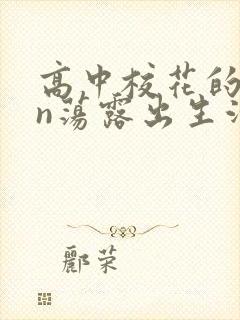 高中校花的
n荡露出生活
郦荣